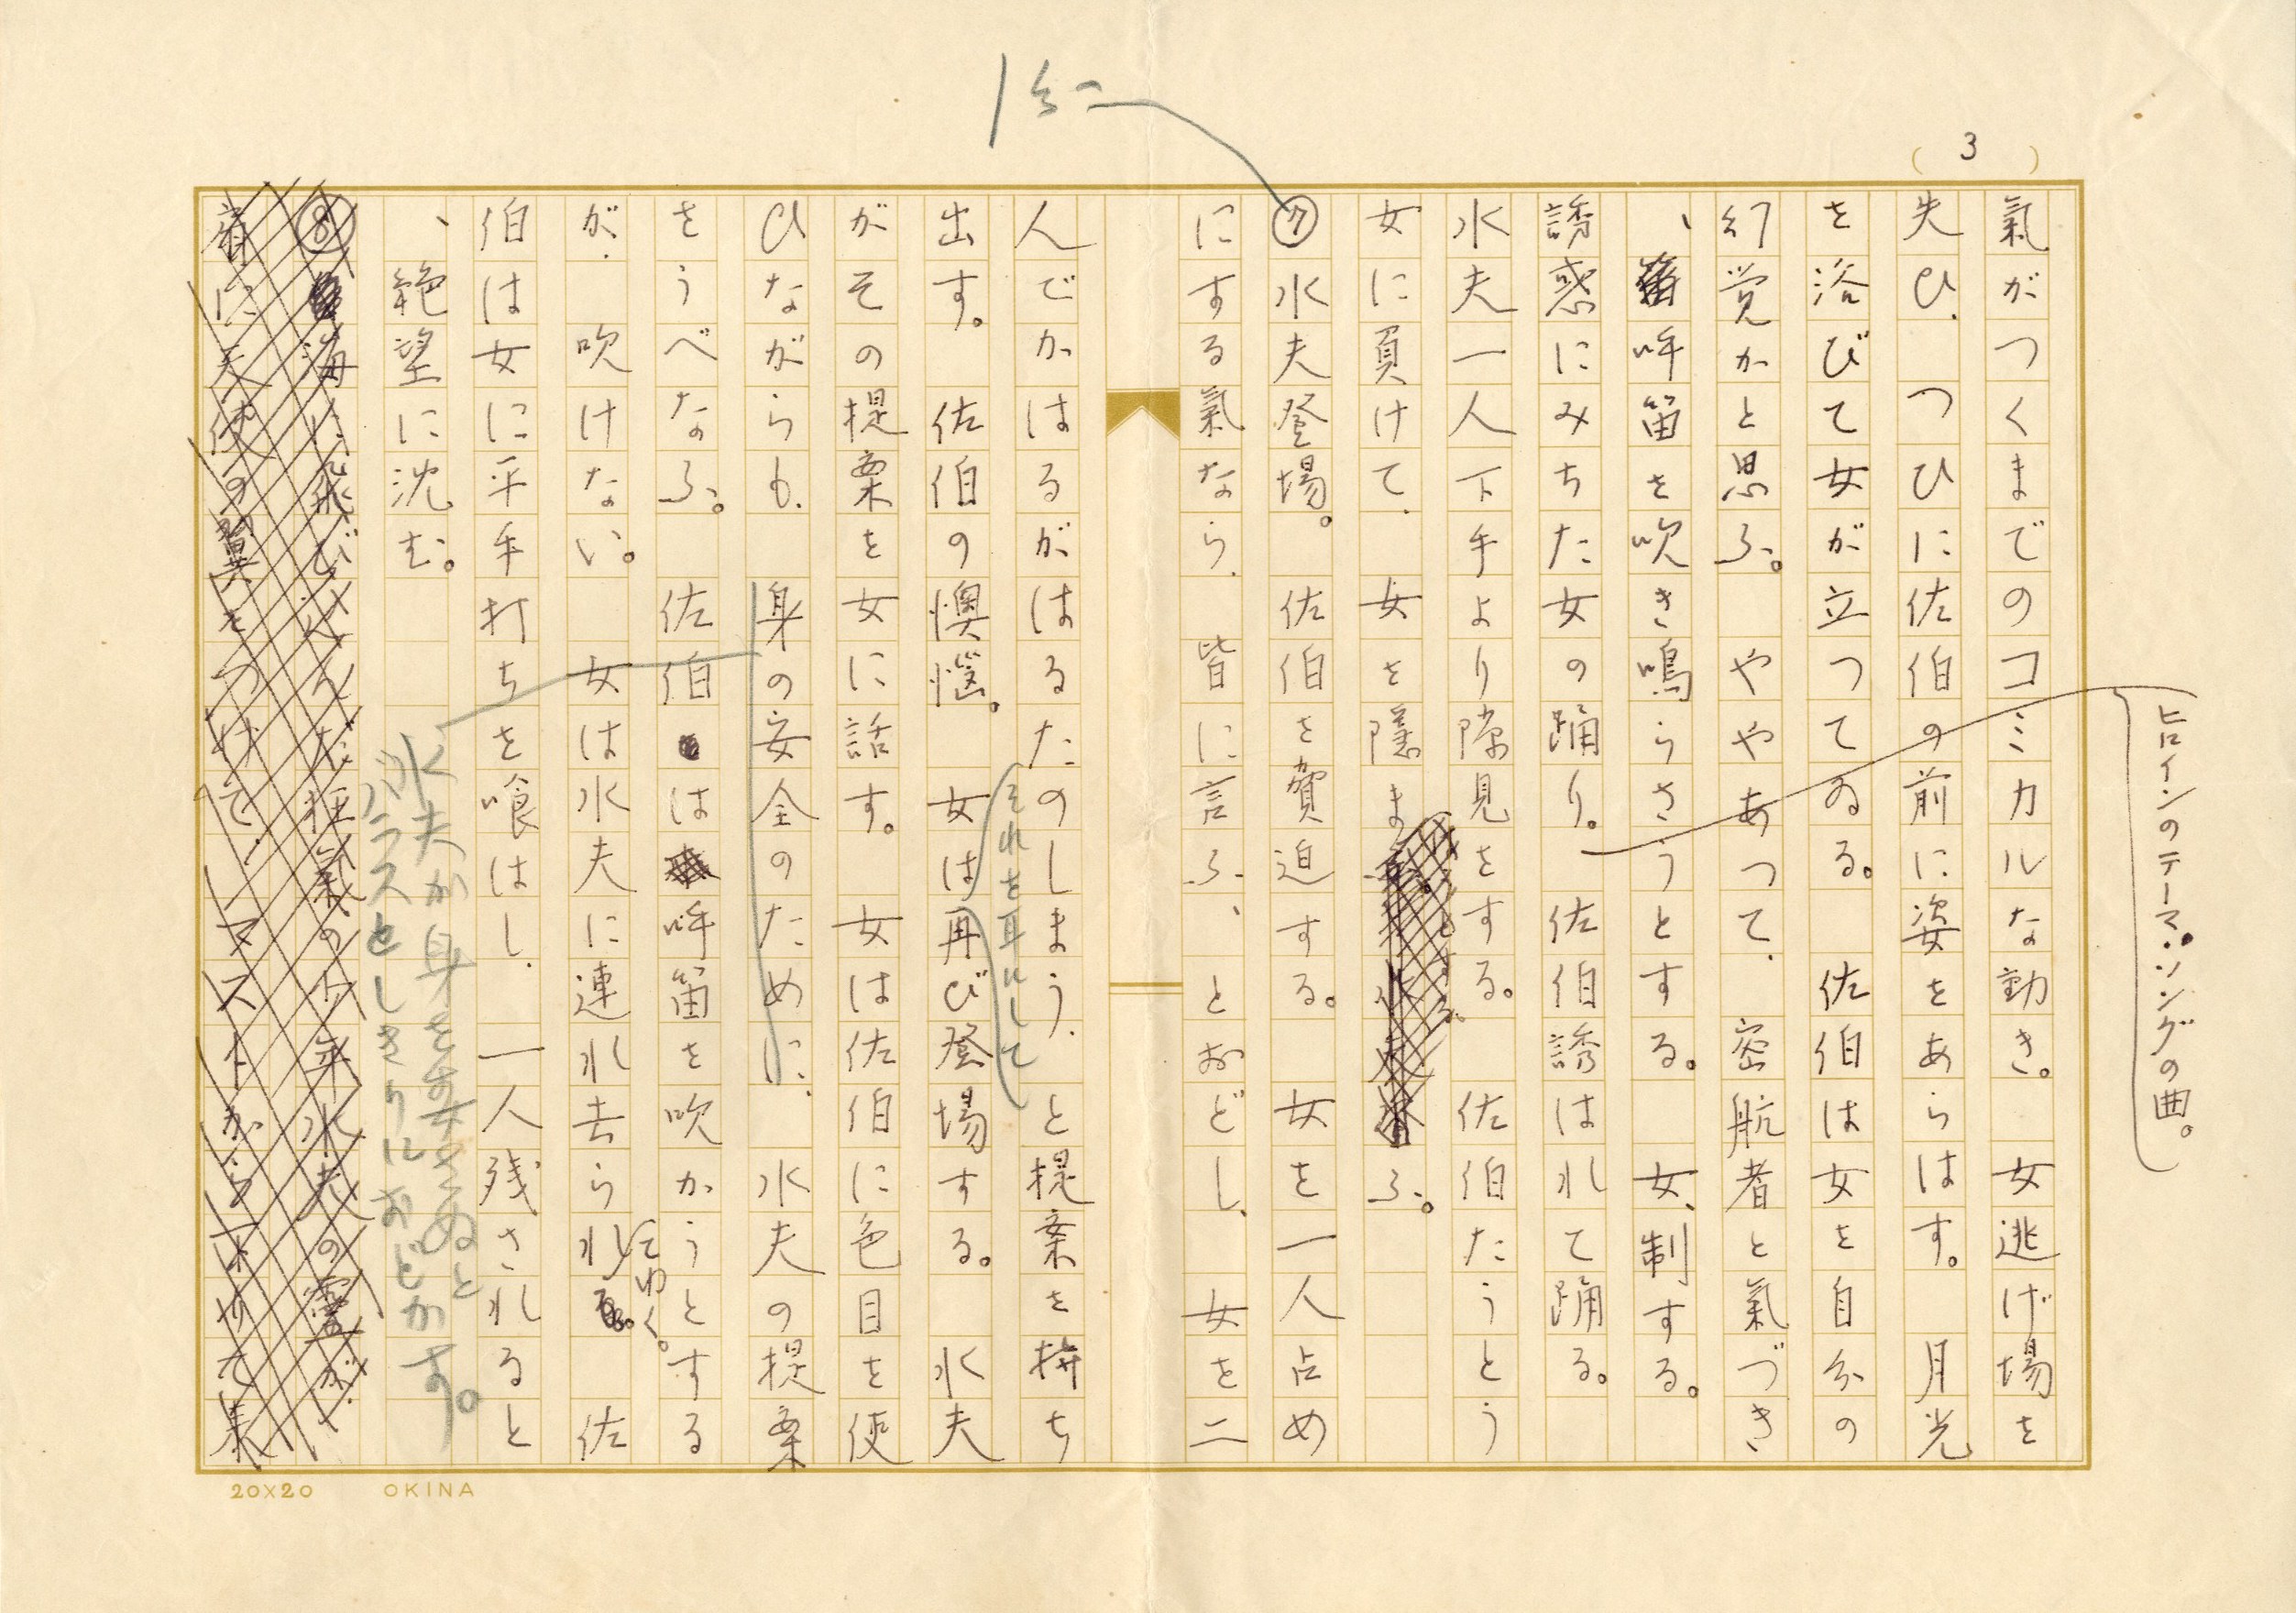 3
氣がつくまでのコミカルな動き。　女逃げ場を
失ひ、つひに佐伯の前に姿をあらはす。　月光
を浴びて女が立つてゐる。　佐伯は女を自分の
幻覚かと思ふ。　ややあつて、密航者と氣づき
、呼笛を吹き鳴らさうとする。　女、制する。
ヒロインのテーマ・ソングの曲。
誘惑にみちた女の踊り。　佐伯誘はれて踊る。
水夫一人下手より隙見をする。　佐伯たうとう
女に負けて、女を隠まふ。
⑦水夫登場。　佐伯を賀迫する。　女を一人占め
にする氣なら、皆に言ふ、とおどし、女を二
人でかはるがはるたのしまう、と提案を持ち
出す。　佐伯の懊惱。　女は再び登場する。　水夫
それを耳にして
がその提案を女に話す。　女は佐伯に色目を使
ひながらも、身の安全のために、水夫の提案
をうべなふ。　佐伯は呼笛を吹かうとする
が、吹けない。　女は水夫に連れ去られてゆく。　佐
伯は女に平手打ちを喰はし、一人残されると
、絶望に沈む。
水夫が身をまかさぬと
バラスとしきりにおどかす。
⑧海に飛び込んだ狂氣の少年水夫の霊が、
肩に天使の翼をつけて、マストから下りて来
20×20　OKINA